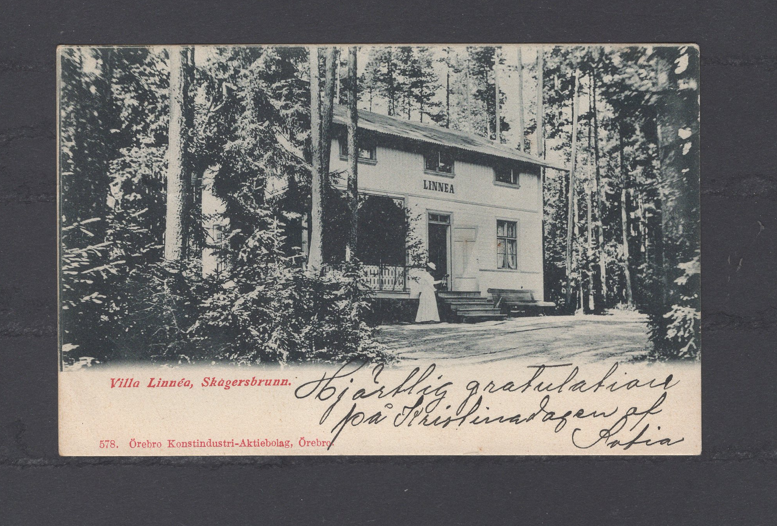 LINNEA
Villa Linnéa, Skagersbrunn.
Hjärtlig gratulation
på Kristinadagen af
Sofia
578. Örebro Konstindustri-Aktiebolag, Örebro.